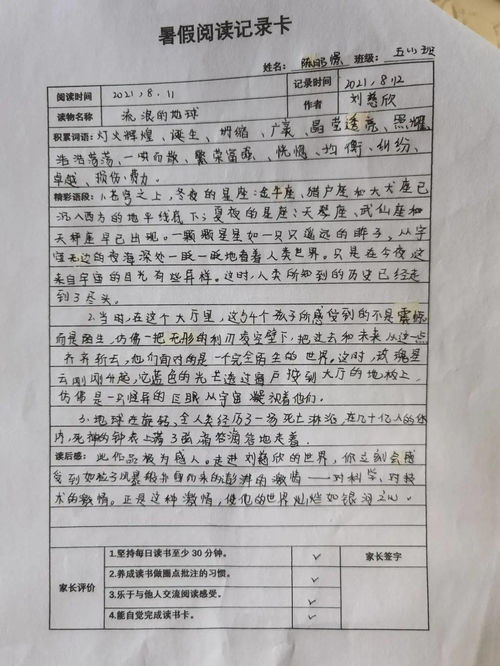 暑假阅读记录卡
姓名: 陈 班级: 五(1)班
阅读时间 2021,8.11 记录时间 2021,8.12
读物名称 流浪的地球 作者 刘慈欣
积累词语: 灯火辉煌、诞生、坍缩、广袤、晶莹透亮、照耀
浩浩荡荡、一哄而散、繁荣富强、恍惚、均衡、纠纷、
卓越、损伤、费力。
精彩语段: 1.苍穹之上,冬夜的星座:金牛座、猎户座和大犬座已
沉入西方的地平线底下;夏夜的星座:天琴座、武仙座和
天秤座早已出现。一颗颗星星如一只只遥远的眸子,从宇
宙无边的夜海深处一眨一眨地看着人类世界。只是在今夜,这
来自宇宙的目光有些异样。这时,人类所知到的历史已经走
到了尽头。
2.当时,在这个大厅里,这54个孩子所感受到的不是震惊
而是陌生,仿佛一把无形的利刃凌空劈下,把过去和未来从这一点
齐齐斩去,他们面对的是一个完全陌生的世界,这时,玫瑰星
云刚刚升起,它蓝色的光芒透过窗户投到大厅的地板上
仿佛是一只怪异的巨眼从宇宙凝视着他们。
3.地球在旋转,全人类经历了一场死亡淋浴,在几十亿人的体
内,死神的钟表上满了弦滴答滴答地走着.
读后感: 此作品极为感人。走进刘慈欣的世界,你立刻会感
受到如粒子风暴般扑面而来的澎湃的激情——对科学、对技
术的激情。正是这种激情,使他的世界灿烂如银河之心。
家长评价
1.坚持每日读书至少 30 分钟。 ✓
2.养成读书做圈点批注的习惯。 ✓
3.乐于与他人交流阅读感受。 ✓
4.能自觉完成读书卡。 ✓
家长签字